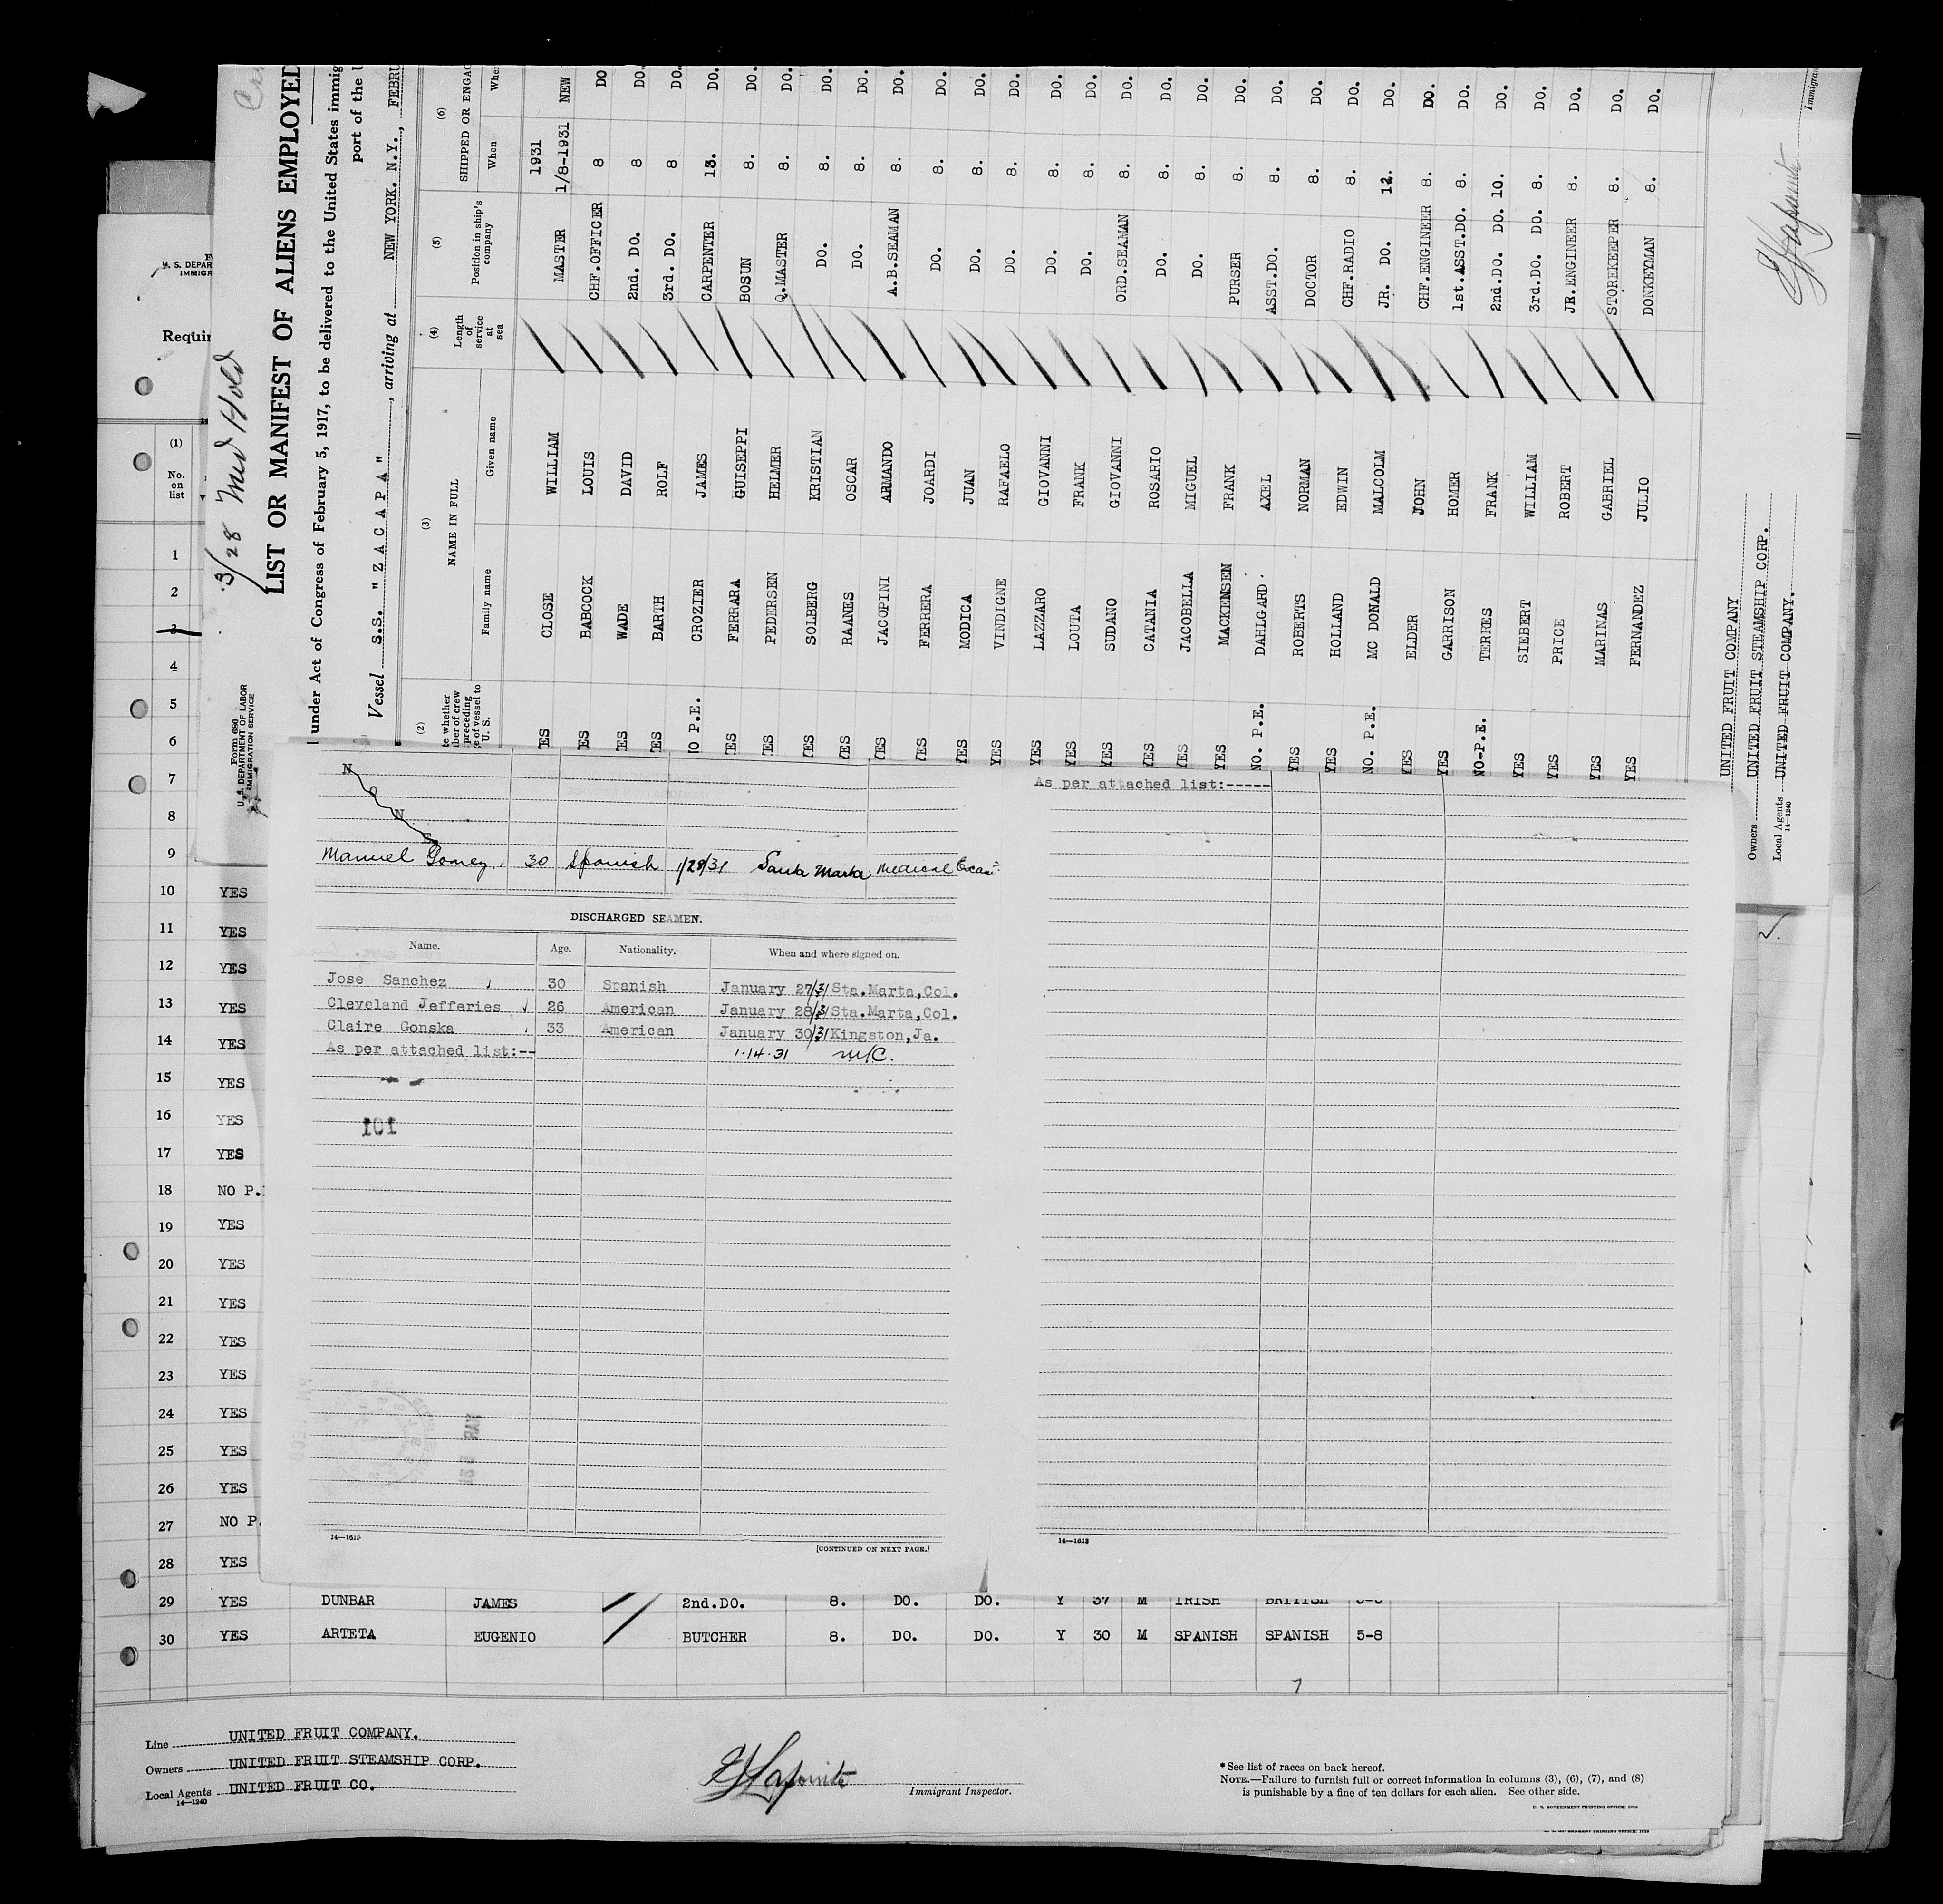 3/28 Med Hold
LIST OR MANIFEST OF ALIENS EMPLOYED
under Act of Congress of February 5, 1917, to be delivered to the United States immig
port of the U
Vessel S.S. "ZACAPA", arriving at NEW YORK. N.Y., FEBRU
Form 680
U. S. DEPARTMENT OF LABOR
IMMIGRATION SERVICE
(2) (3) (4) (5) (6)
NAME IN FULL SHIPPED OR ENGAG
Family name Given name Length of service at sea Position in ship's company When Wher
1931
YES CLOSE WILLIAM MASTER 1/8-1931 NEW
YES BABCOCK LOUIS CHF.OFFICER 8 DO
YES WADE DAVID 2nd. DO. 8 DO.
YES BARTH ROLF 3rd. DO. 8 DO.
NO P.E. CROZIER JAMES CARPENTER 13. DO.
YES FERRARA GUISEPPI BOSUN 8. DO.
YES PEDERSEN HELMER Q.MASTER 8. DO.
YES SOLBERG KRISTIAN DO. 8. DO.
YES RAANES OSCAR DO. 8. DO.
YES JACOPINI ARMANDO A.B.SEAMAN 8. DO.
YES FERRERA JOARDI DO. 8. DO.
YES MODICA JUAN DO. 8. DO.
YES VINDIGNE RAFAELO DO. 8. DO.
YES LAZZARO GIOVANNI DO. 8. DO.
YES LOUTA FRANK DO. 8. DO.
YES SUDANO GIOVANNI ORD.SEAMAN 8. DO.
YES CATANIA ROSARIO DO. 8. DO.
YES JACOBELLA MIGUEL DO. 8. DO.
YES MACKENSEN FRANK PURSER 8. DO.
NO. P.E. DAHLGARD. AXEL ASST.DO. 8. DO.
YES ROBERTS NORMAN DOCTOR 8. DO.
YES HOLLAND EDWIN CHF.RADIO 8. DO.
NO. P.E. MC DONALD MALCOLM JR. DO. 12. DO.
YES ELDER JOHN CHF.ENGINEER 8. DO.
YES GARRISON HOMER 1st.ASST.DO. 8. DO.
NO-P.E. TERRES FRANK 2nd.DO. DO. 10. DO.
YES SIEBERT WILLIAM 3rd.DO. DO. 8. DO.
YES PRICE ROBERT JR.ENGINEER 8. DO.
YES MARINAS GABRIEL STOREKEEPER 8. DO.
YES FERNANDEZ JULIO DONKEYMAN 8. DO.
UNITED FRUIT COMPANY
Owners UNITED FRUIT STEAMSHIP CORP.
Local Agents UNITED FRUIT COMPANY.
14—1240
Immigran
U. S. DEPAR
IMMIGR
Requir
(1)
No. on list
1
2
3
4
5
6
7
8
9
10 YES
11 YES
12 YES
13 YES
14 YES
15 YES
16 YES
17 YES
18 NO P.
19 YES
20 YES
21 YES
22 YES
23 YES
24 YES
25 YES
26 YES
27 NO P.
28 YES
N
O
N
E
Manuel Gomez 30 Spanish 1/28/31 Santa Marta Medical Exam
DISCHARGED SEAMEN.
Name. Age. Nationality. When and where signed on.
Jose Sanchez 30 Spanish January 27/31 Sta.Marta,Col.
Cleveland Jefferies 26 American January 28/31 Sta.Marta,Col.
Claire Gonska 33 American January 30/31 Kingston,Ja.
As per attached list:-- 1·14·31
101
14—1613
[CONTINUED ON NEXT PAGE.]
As per attached list:-----
14—1613
29 YES DUNBAR JAMES 2nd.DO. 8. DO. DO. Y 37 M IRISH BRITISH
30 YES ARTETA EUGENIO BUTCHER 8. DO. DO. Y 30 M SPANISH SPANISH 5-8
Line UNITED FRUIT COMPANY.
Owners UNITED FRUIT STEAMSHIP CORP.
Local Agents UNITED FRUIT CO.
14—1240
Immigrant Inspector.
*See list of races on back hereof.
NOTE.—Failure to furnish full or correct information in columns (3), (6), (7), and (8)
is punishable by a fine of ten dollars for each alien. See other side.
U. S. GOVERNMENT PRINTING OFFICE: 1930